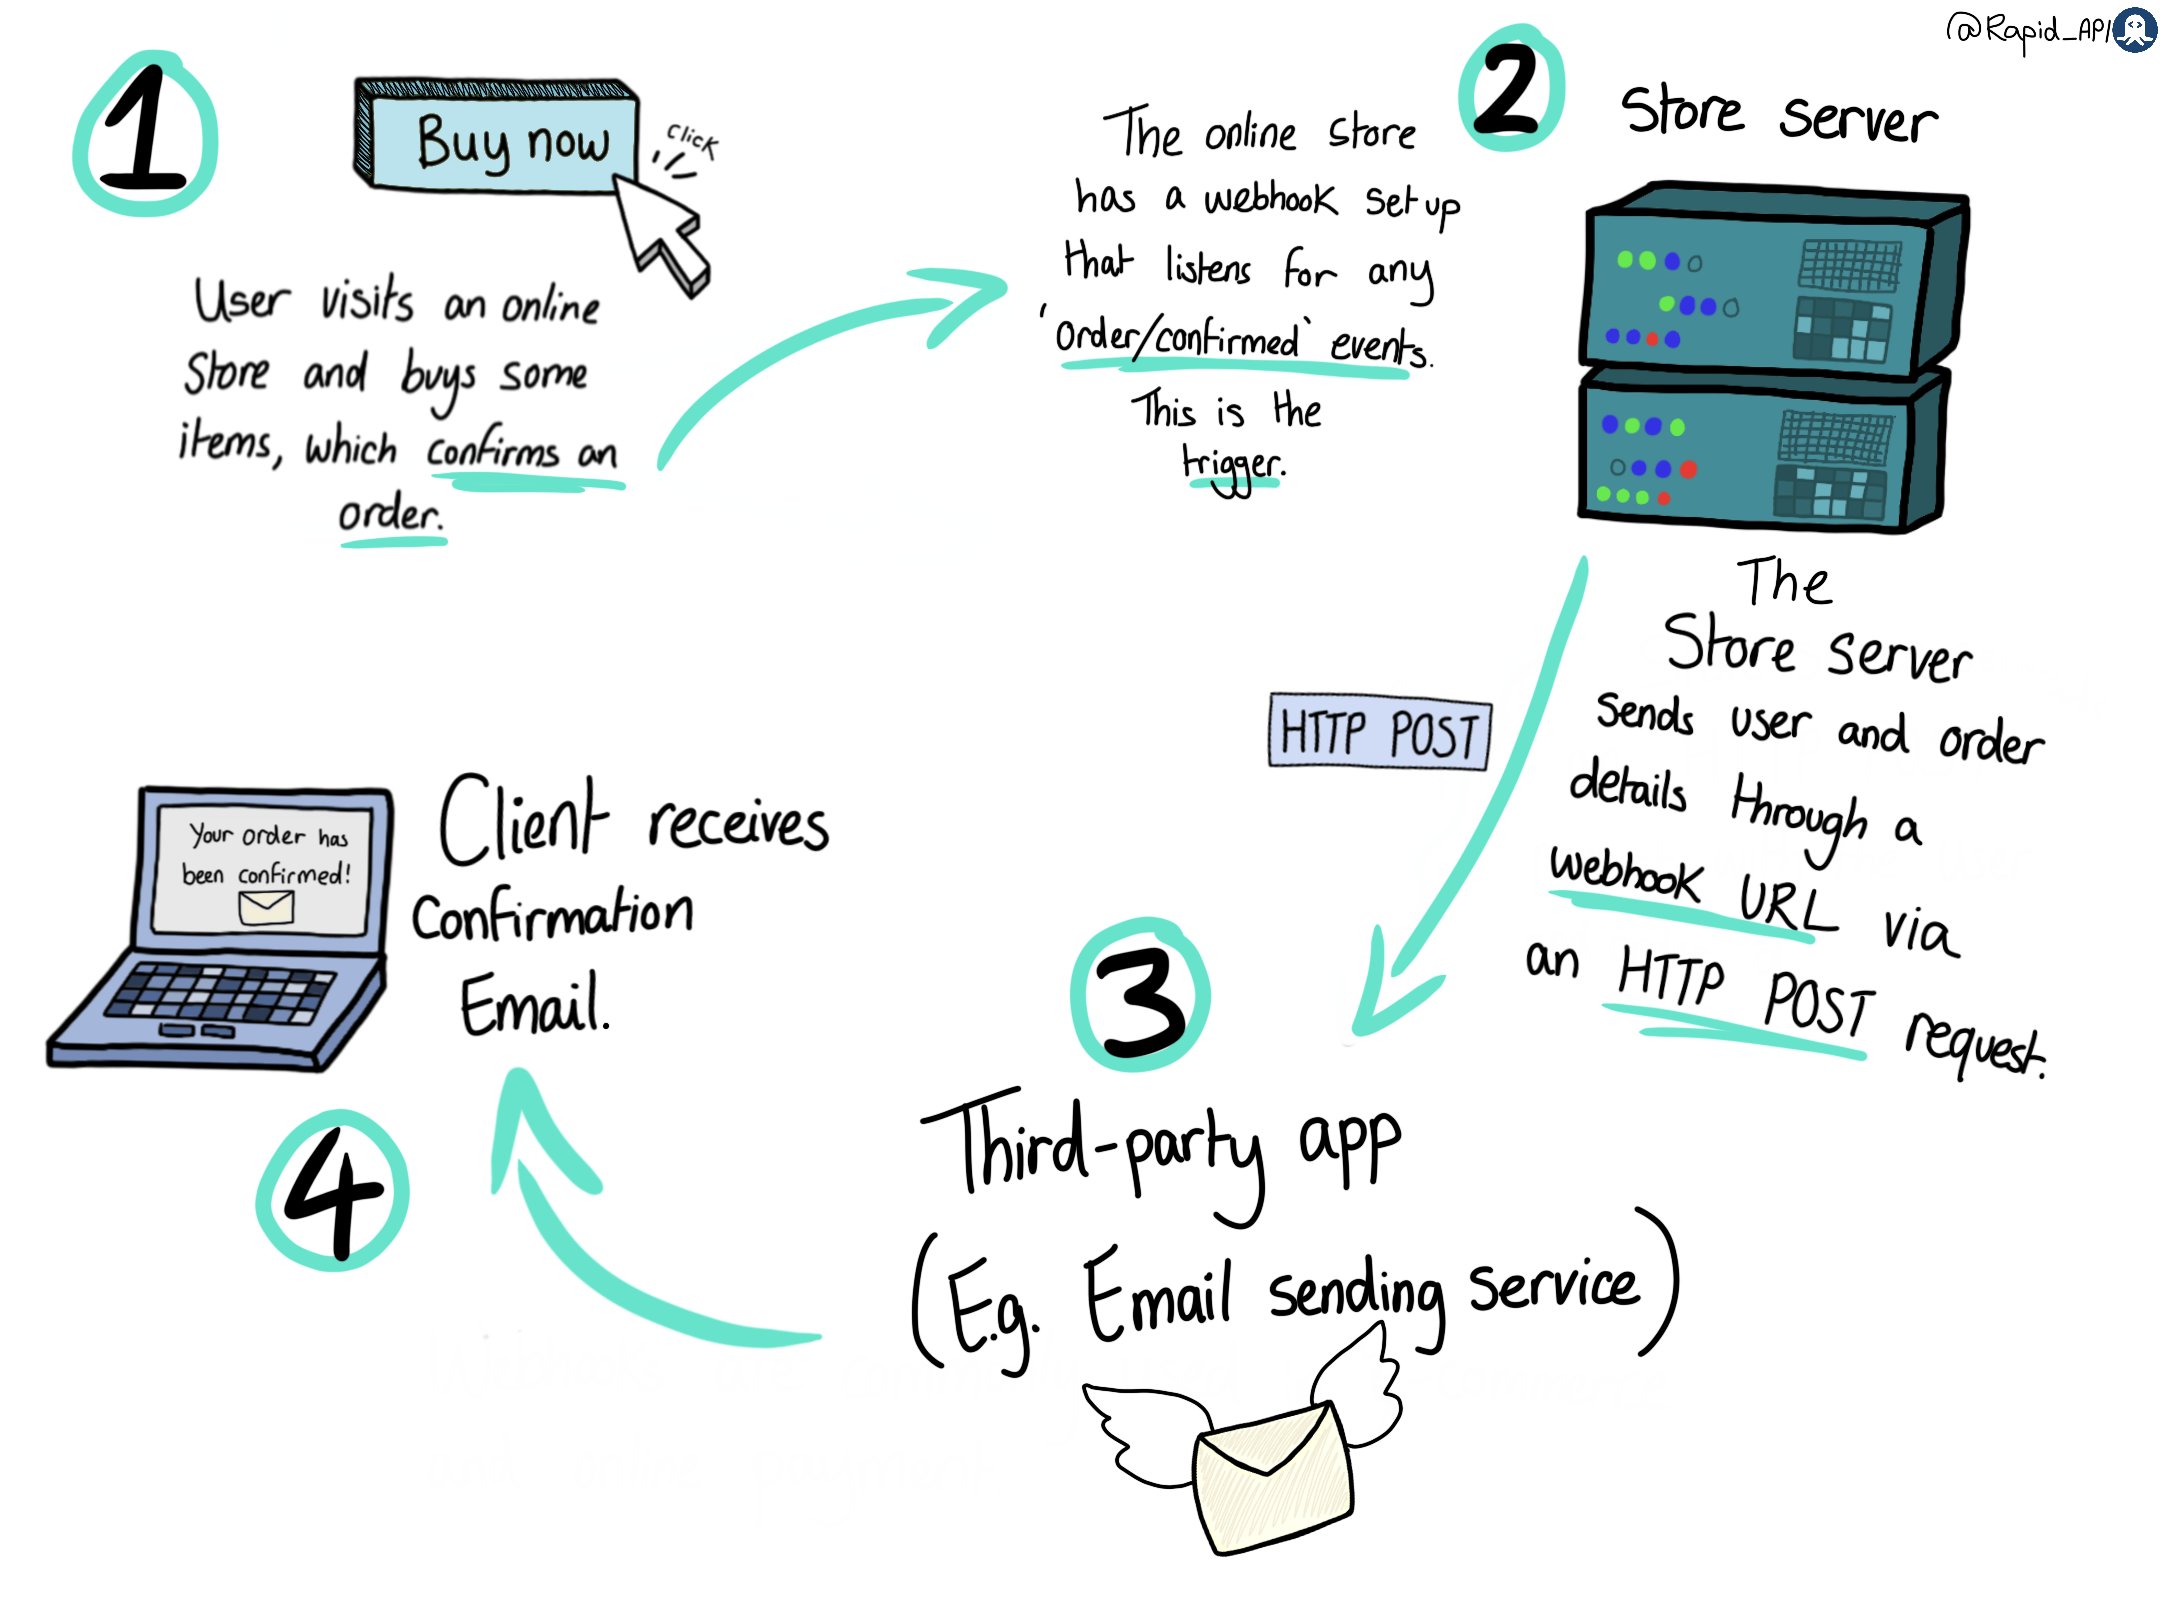 @Rapid_API
1
Buy now
click
User visits an online
Store and buys some
items, which confirms an
order.
2
Store server
The online store
has a webhook setup
that listens for any
'order/confirmed` events.
This is the
trigger.
The
Store server
sends user and order
details through a
webhook URL via
an HTTP POST request.
HTTP POST
3
Third-party app
(E.g. Email sending service)
4
Your order has
been confirmed!
Client receives
Confirmation
Email.